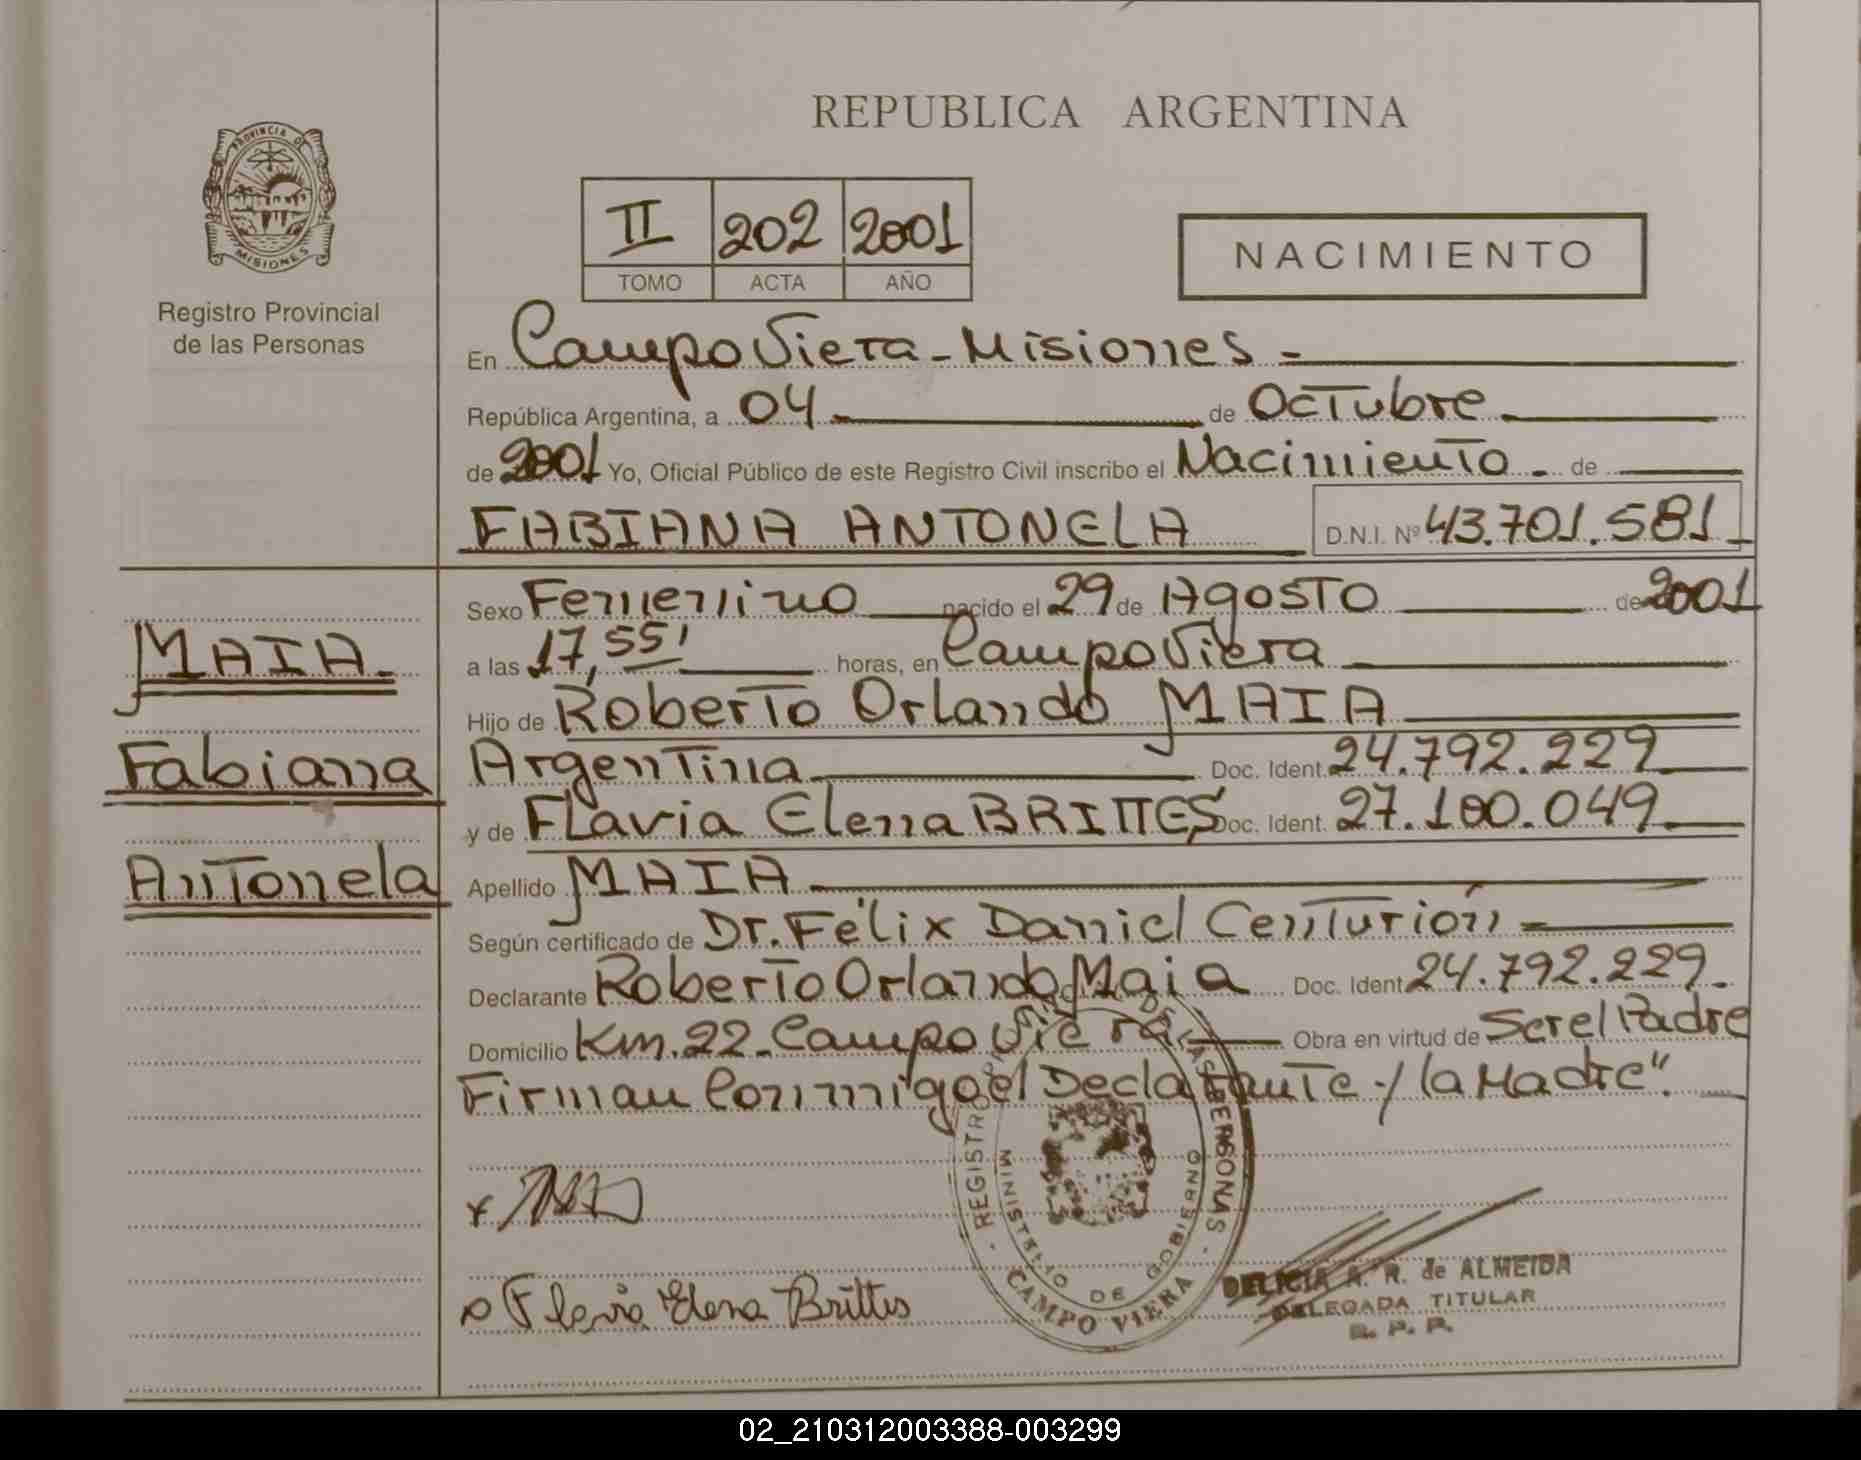 REPUBLICA ARGENTINA
PROVINCIA DE
MISIONES
Registro Provincial
de las Personas
II 202 2001
TOMO ACTA AÑO
NACIMIENTO
En Campo Viera - Misiones -
República Argentina, a 04 de Octubre
de 2001 Yo, Oficial Público de este Registro Civil inscribo el Nacimiento - de
FABIANA ANTONELA D.N.I. Nº 43.701.581
MAIA.
Fabiana
Antonela
Sexo Femenino nacido el 29 de Agosto de 2001
a las 17,55' horas, en Campo Viera
Hijo de Roberto Orlando MAIA
Argentina Doc. Ident. 24.792.229
y de Flavia Elena BRITTES Doc. Ident. 27.100.049
Apellido MAIA
Según certificado de Dr. Félix Daniel Centurión
Declarante Roberto Orlando Maia Doc. Ident. 24.792.229.
Domicilio Km. 22 - Campo Viera Obra en virtud de Ser el Padre
Firman Conmigo el Declarante y la Madre".
x
Flavia Elena Brittes
REGISTRO DE LAS PERSONAS
MINISTERIO DE GOBIERNO
CAMPO VIERA
DELICIA A. R. de ALMEIDA
DELEGADA TITULAR
R. P. P.
02_210312003388-003299